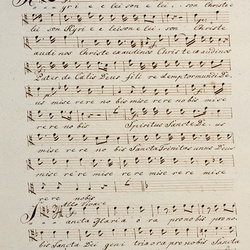 Kyri e e leison e lei, son Christe e
lei son Kyri e e leison e lei, son Christe
audi nos Christe exaudi nos Christe exaudi nos
Pater de Cælis Deus fili redemptor mundi De,
us mise rere no bis mise rere no bis mise
re re no bis Spiritus Sancte De us
mise re re no bis Sancta Trinitas unus Deus
mise re re mise re re mise re re mise
rere nobis
Allo Poco
Sancta Maria o ra pro no bis pro no,
bis Sancta Dei gene trix ora pro nobis Sancta